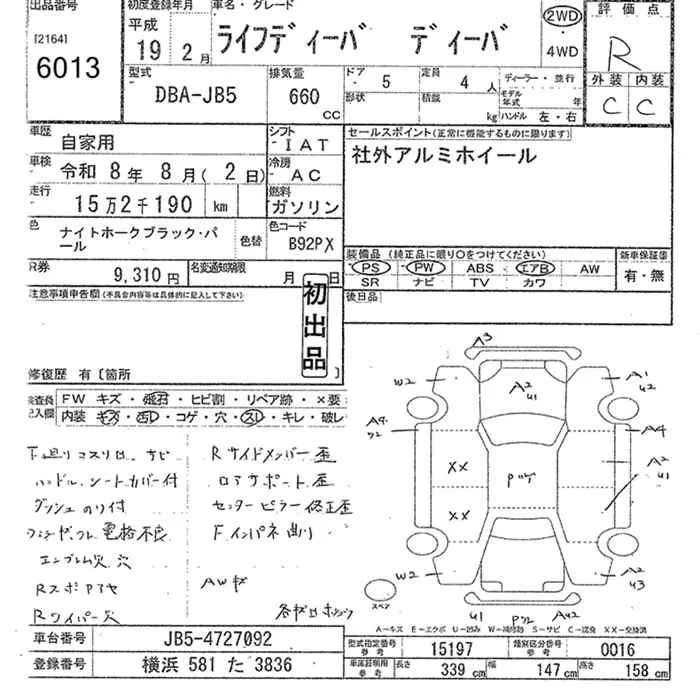 出品番号
[2164]
6013
初度登録年月
平成
19年 2月
車名・グレード
ライフディーバ ディーバ
2WD
・
4WD
評価点
R
外装 内装
C C
型式
DBA-JB5
排気量
660 CC
ドア 5
形状
定員 4 人
積載 kg
ディーラー・並行
モデル年式 年
ハンドル 左・右
車歴 自家用
シフト IAT
車検 令和 8年 8月( 2日)
冷房 AC
走行 15万2千190 km
燃料 ガソリン
色 ナイトホークブラック・パール
色替
色コード B92PX
セールスポイント(正常に機能するものに限ります)
社外アルミホイール
装備品(純正品に限り○をつけてください)
PS ・ PW ・ ABS ・ エアB ・ AW
SR ・ ナビ ・ TV ・ カワ
新車保証書
有・無
R券 9,310円
名変通知期限 月 日
後日品
注意事項申告欄(不具合内容等は具体的に記入して下さい)
初出品
修復歴 有〔箇所 〕
検査員記入欄
FW キズ・飛石・ヒビ割・リペア跡・×要
内装 キズ・汚レ・コゲ・穴・スレ・キレ・破レ
下廻りコスリ凹、サビ
ハンドル、シートカバー付
ダッシュのり付
電格不良
エンブレム欠、穴
Rワイパー欠
Rサイドメンバー歪
ロアサポート歪
センターピラー修正歪
Fインパネ曲り
AWキズ
A3
W2
A2
U1
A1
U2
A4
A4
A2
U1
XX
XX
W2
A2
U3
U1
スペア
A−キズ E−エクボ U−凹み W−補修跡 S−サビ C−腐食 XX−交換済
車台番号 JB5-4727092
登録番号 横浜 581 た 3836
型式指定番号 参考 15197
類別区分番号 参考 0016
車庫証明用 参考
長さ 339 cm
幅 147 cm
高さ 158 cm